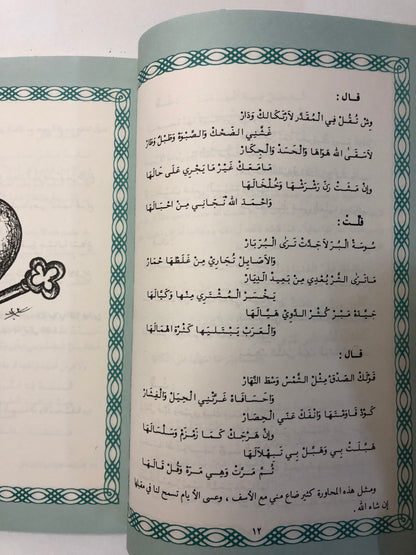 قال :
وش تقل في المقدر لا تكالك ودار
غشني الضحك والصبوة وطبل وطار
لا سقى الله هواها والحسد والجكار
ما معك غير ما يجري على حالها
وإن مشت رن رشرشها وخلخالها
واحمد الله نجاني من احبالها
قلت :
سوسة البر لا جدت ترى البر بار
والأصايل تجاري من غلظها حمار
ما ترى الشر يعدي من بعيد الديار
يخسر المشتري منها وكيالها
جيده مير كثر الدوي هبالها
والعرب يبتليها كثرة اهمالها
قال :
قولك الصدق مثل الشمس وسط النهار
واحسافاه غرتني الحيل والفشار
كود قاومتها وانفك عني الحصار
وإن هرجك كما زمزم وسلسالها
هبلت بي وهبل بي تبهلالها
ثم مرت وهي مره وقل قالها
ومثل هذه المحاورة كثير ضاع مني مع الأسف ، وعسى الأيام تسمح لنا في مقبلها
إن شاء الله .
١٢